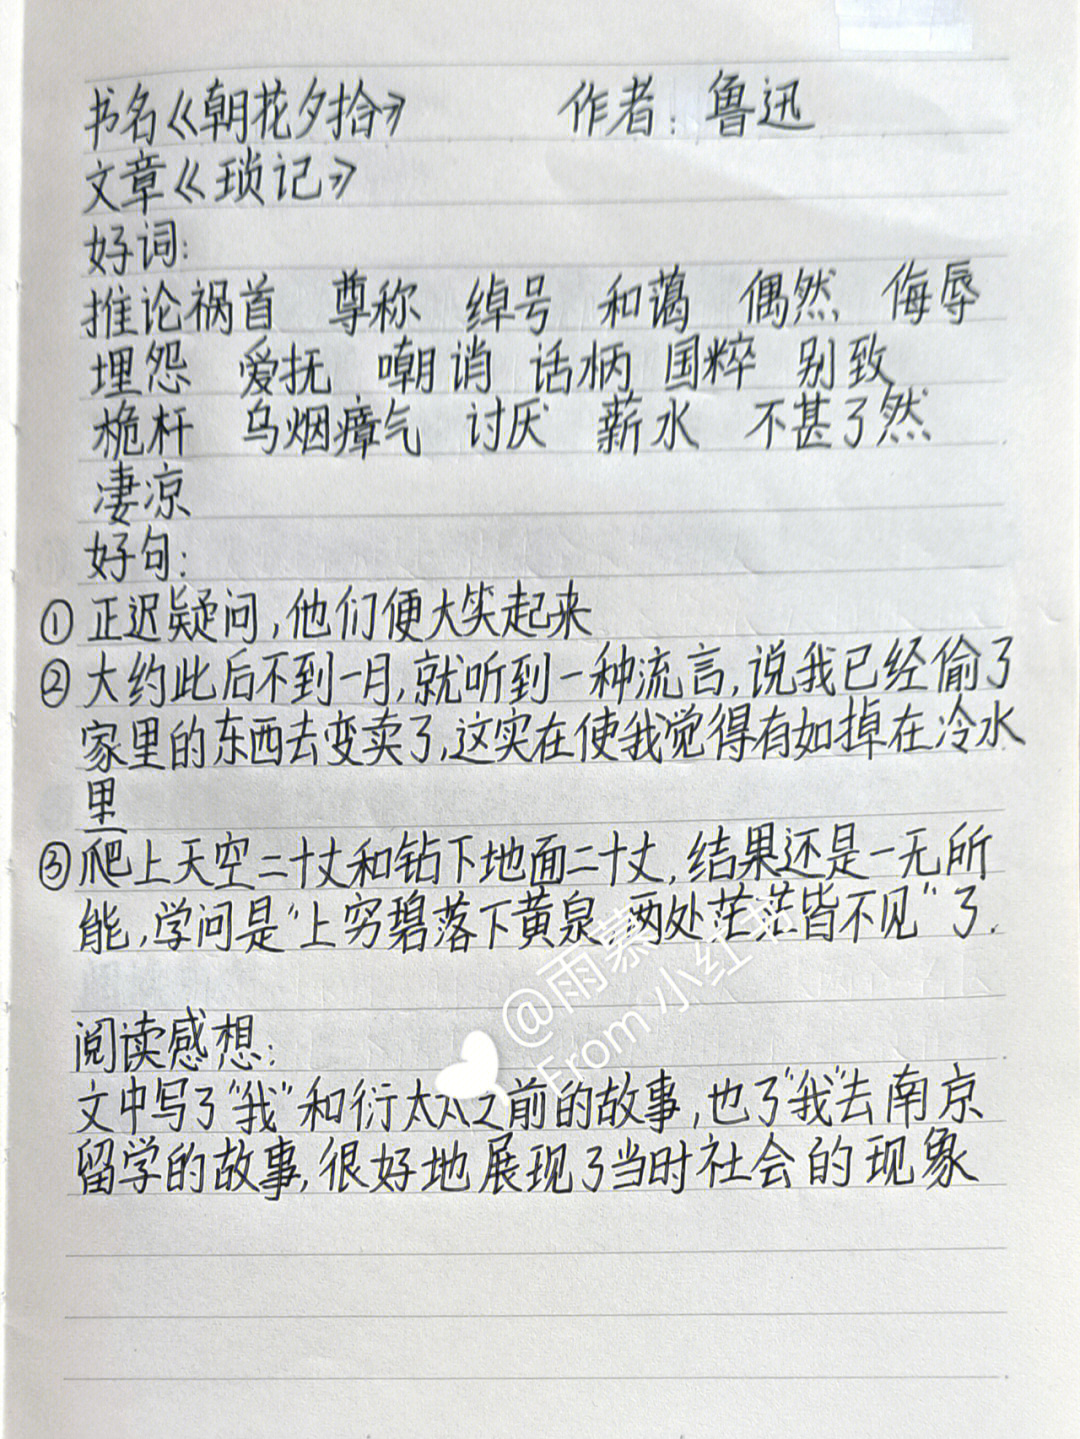 书名《朝花夕拾》 作者：鲁迅
文章《琐记》
好词：
推论祸首 尊称 绰号 和蔼 偶然 侮辱
埋怨 爱抚 嘲诮 话柄 国粹 别致
桅杆 乌烟瘴气 讨厌 薪水 不甚了然
凄凉
好句：
①正迟疑问，他们便大笑起来
②大约此后不到一月，就听到一种流言，说我已经偷了
家里的东西去变卖了，这实在使我觉得有如掉在冷水
里
③爬上天空二十丈和钻下地面二十丈，结果还是一无所
能，学问是“上穷碧落下黄泉，两处茫茫皆不见”了．
阅读感想：
文中写了“我”和衍太太之前的故事，也了“我”去南京
留学的故事，很好地展现了当时社会的现象
@雨慕
From 小红书